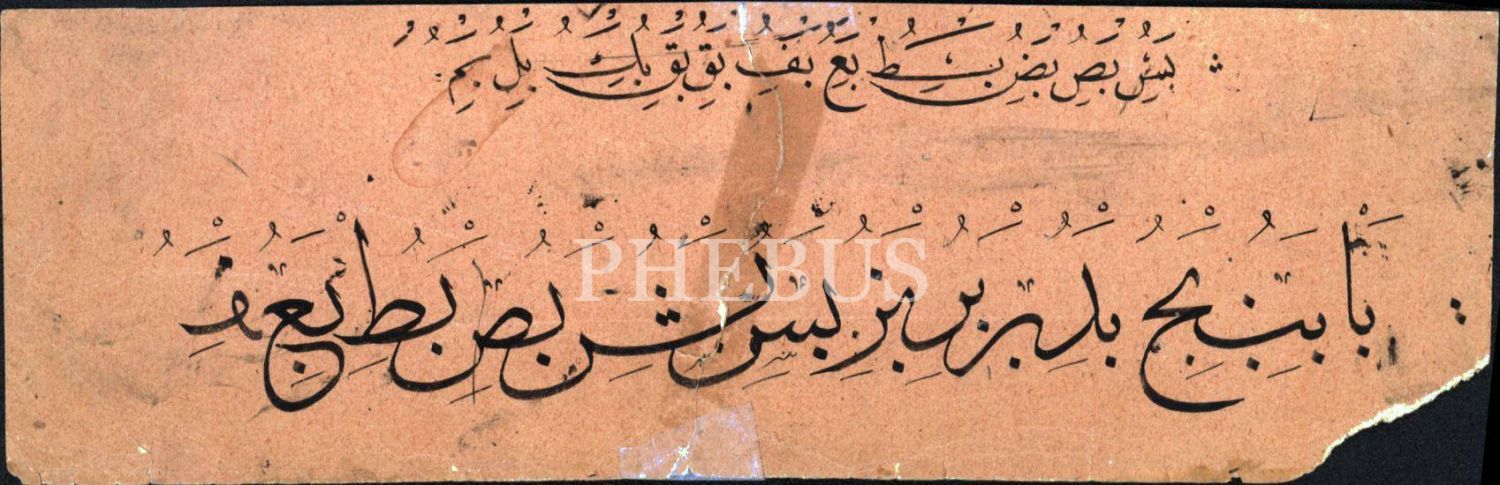 بس بص بض بط بع بف بق بق بك بل بم
با بب بج بد بر بر بز بس بش بص بط بع بف
PHEBUS